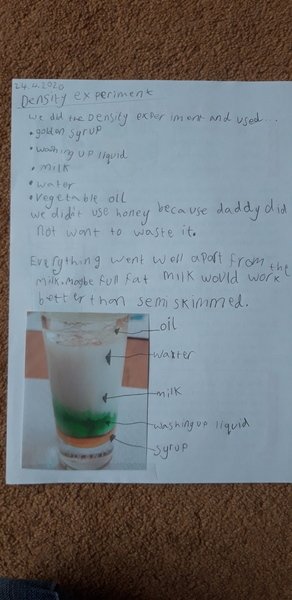 24.4.2020
Density experiment
We did the Density experiment and used...
• golden syrup
• washing up liquid
• milk
• water
• vegetable oil
We didn't use honey because daddy did
not want to waste it.
Everything went well apart from the
milk. Maybe full fat milk would work
better than semi skimmed.
oil
waxter
milk
washing up liquid
syrup